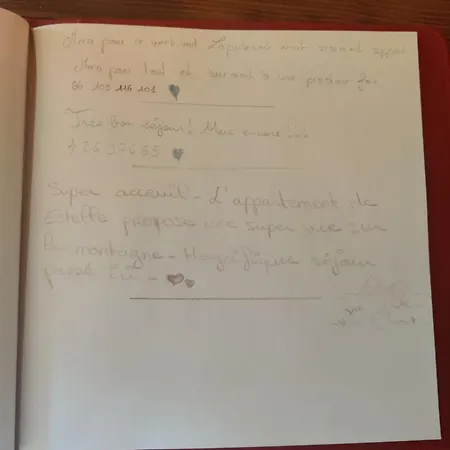 pour ce week end L'appartement vraiment
pour tout et surement à une prochaine fo-
86 101 116 101
Très bon séjour! Merci encore!!!
42632685
Super acceuil - L'appartement de
Estelle propose une super vue sur
la montagne - Magnifique séjour
passé ici -